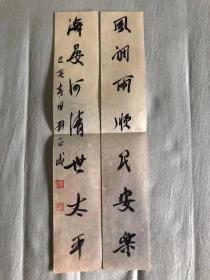 風調雨順民安樂
海晏河清世太平
己亥春月 劉正成